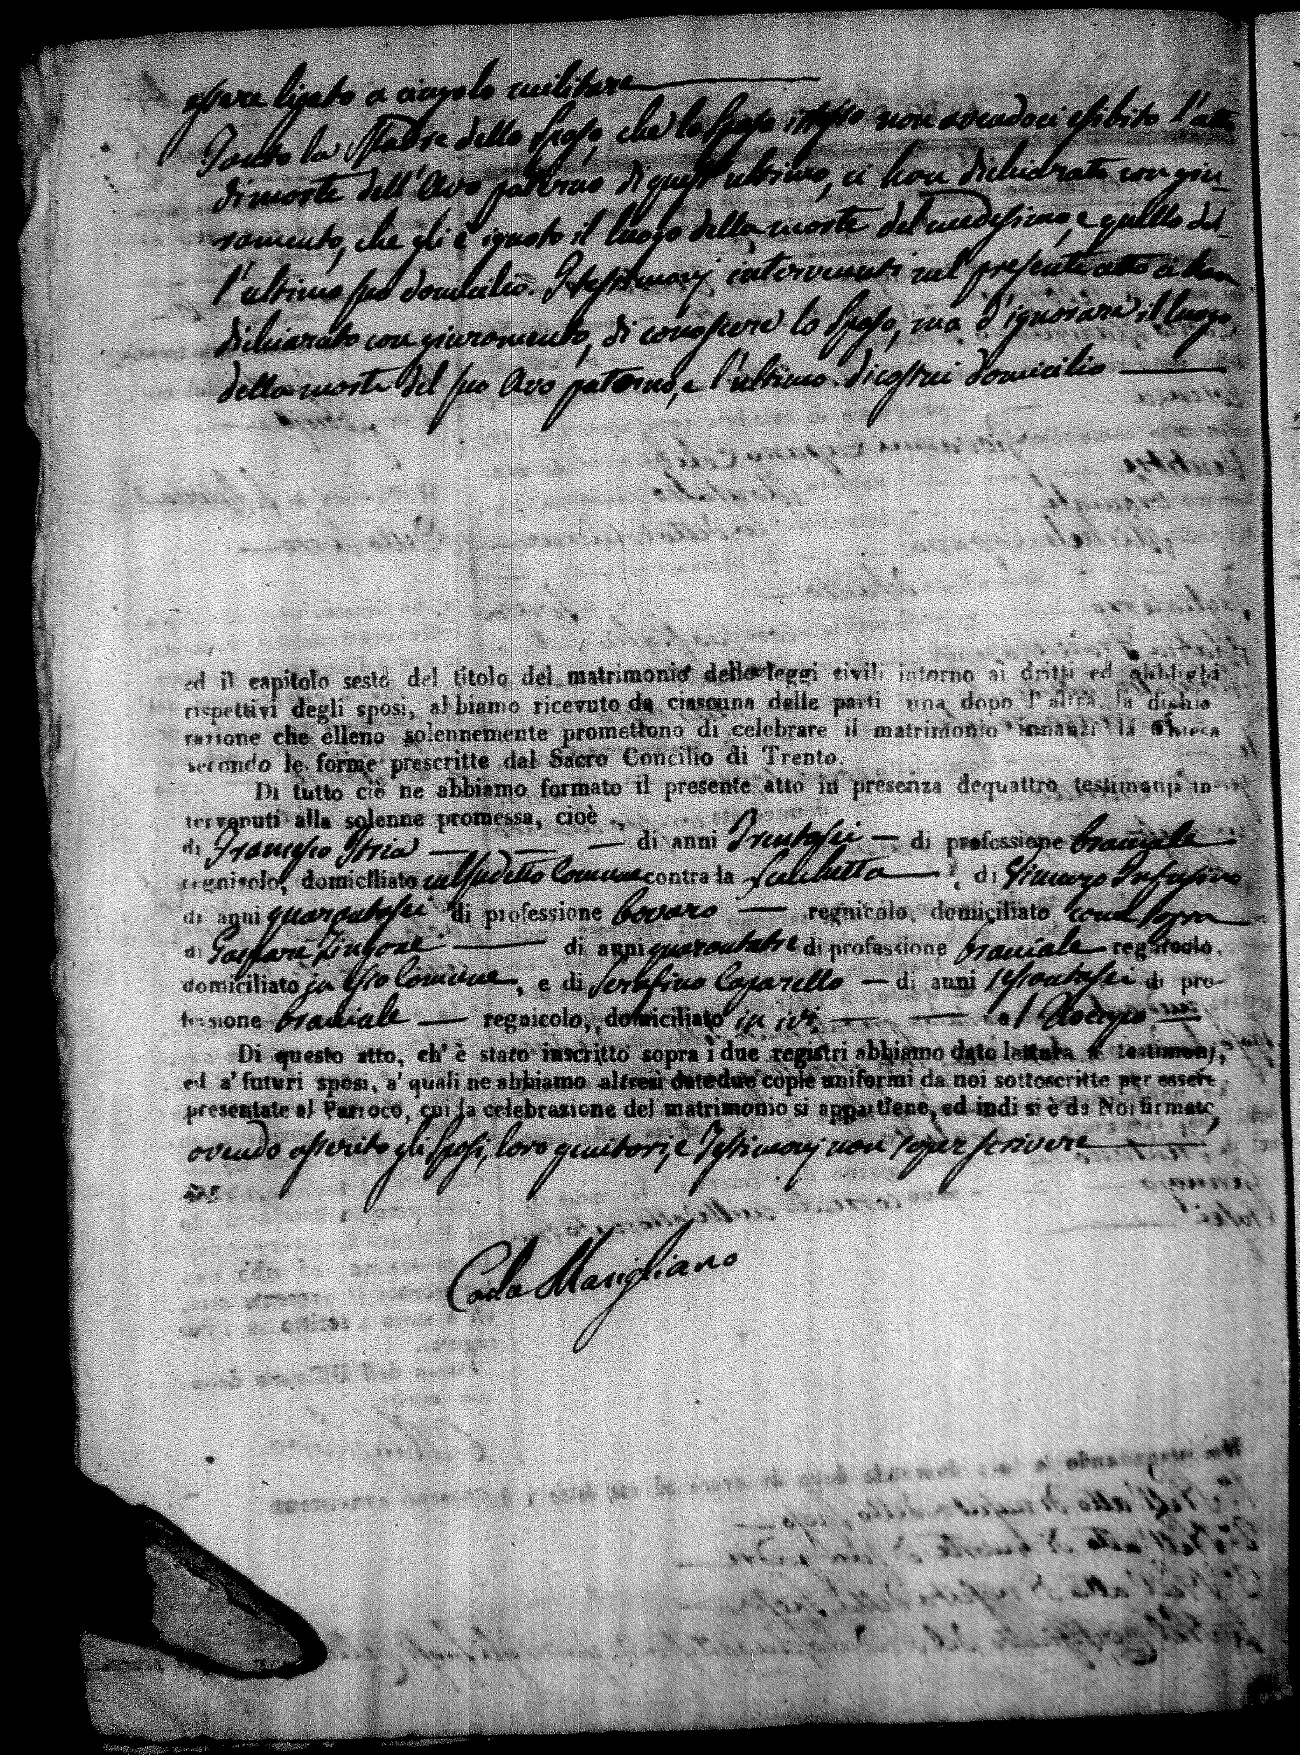 essere ligato a cingolo militare
Tanto la Madre dello Sposo, che lo Sposo istesso non avendoci esibito l'atto
di morte dell'Avo paterno di quest'ultimo, ci han dichiarato con giu-
ramento, che gli è ignoto il luogo della morte del medesimo, e quello del-
l'ultimo suo domicilio. I testimonj intervenuti nel presente atto ci han
dichiarato con giuramento, di conoscere lo Sposo, ma d'ignorare il luogo
della morte del suo Avo paterno, e l'ultimo di costui domicilio
ed il capitolo sesto del titolo del matrimonio delle leggi civili intorno ai dritti ed obblighi
rispettivi degli sposi, abbiamo ricevuto da ciascuna delle parti una dopo l'altra la dichia
razione che elleno solennemente promettono di celebrare il matrimonio innanzi la Chiesa
secondo le forme prescritte dal Sacro Concilio di Trento.
Di tutto ciò ne abbiamo formato il presente atto in presenza de quattro testimonj in-
tervenuti alla solenne promessa, cioè
di Francesco Stria di anni Trentasei di professione bracciale
regnicolo, domiciliato nel sudetto Comune contra la, di
di anni quarantasei di professione bovaro regnicolo, domiciliato come sopra
di Gaspare Zingone di anni quarantatre di professione bracciale regnicolo,
domiciliato in esso Comune, e di Serafino Caparello di anni sessantasei di pro-
fessione bracciale regnicolo, domiciliato in ivi
Di questo atto, ch'è stato inscritto sopra i due registri abbiamo dato lettura a' testimonj,
ed a' futuri sposi, a' quali ne abbiamo altresì date due copie uniformi da noi sottoscritte per essere
presentate al Parroco, cui la celebrazione del matrimonio si appartiene, ed indi si è da Noi firmato,
avendo asserito gli Sposi, loro genitori, e Testimonj non saper scrivere
Carlo Marigliano